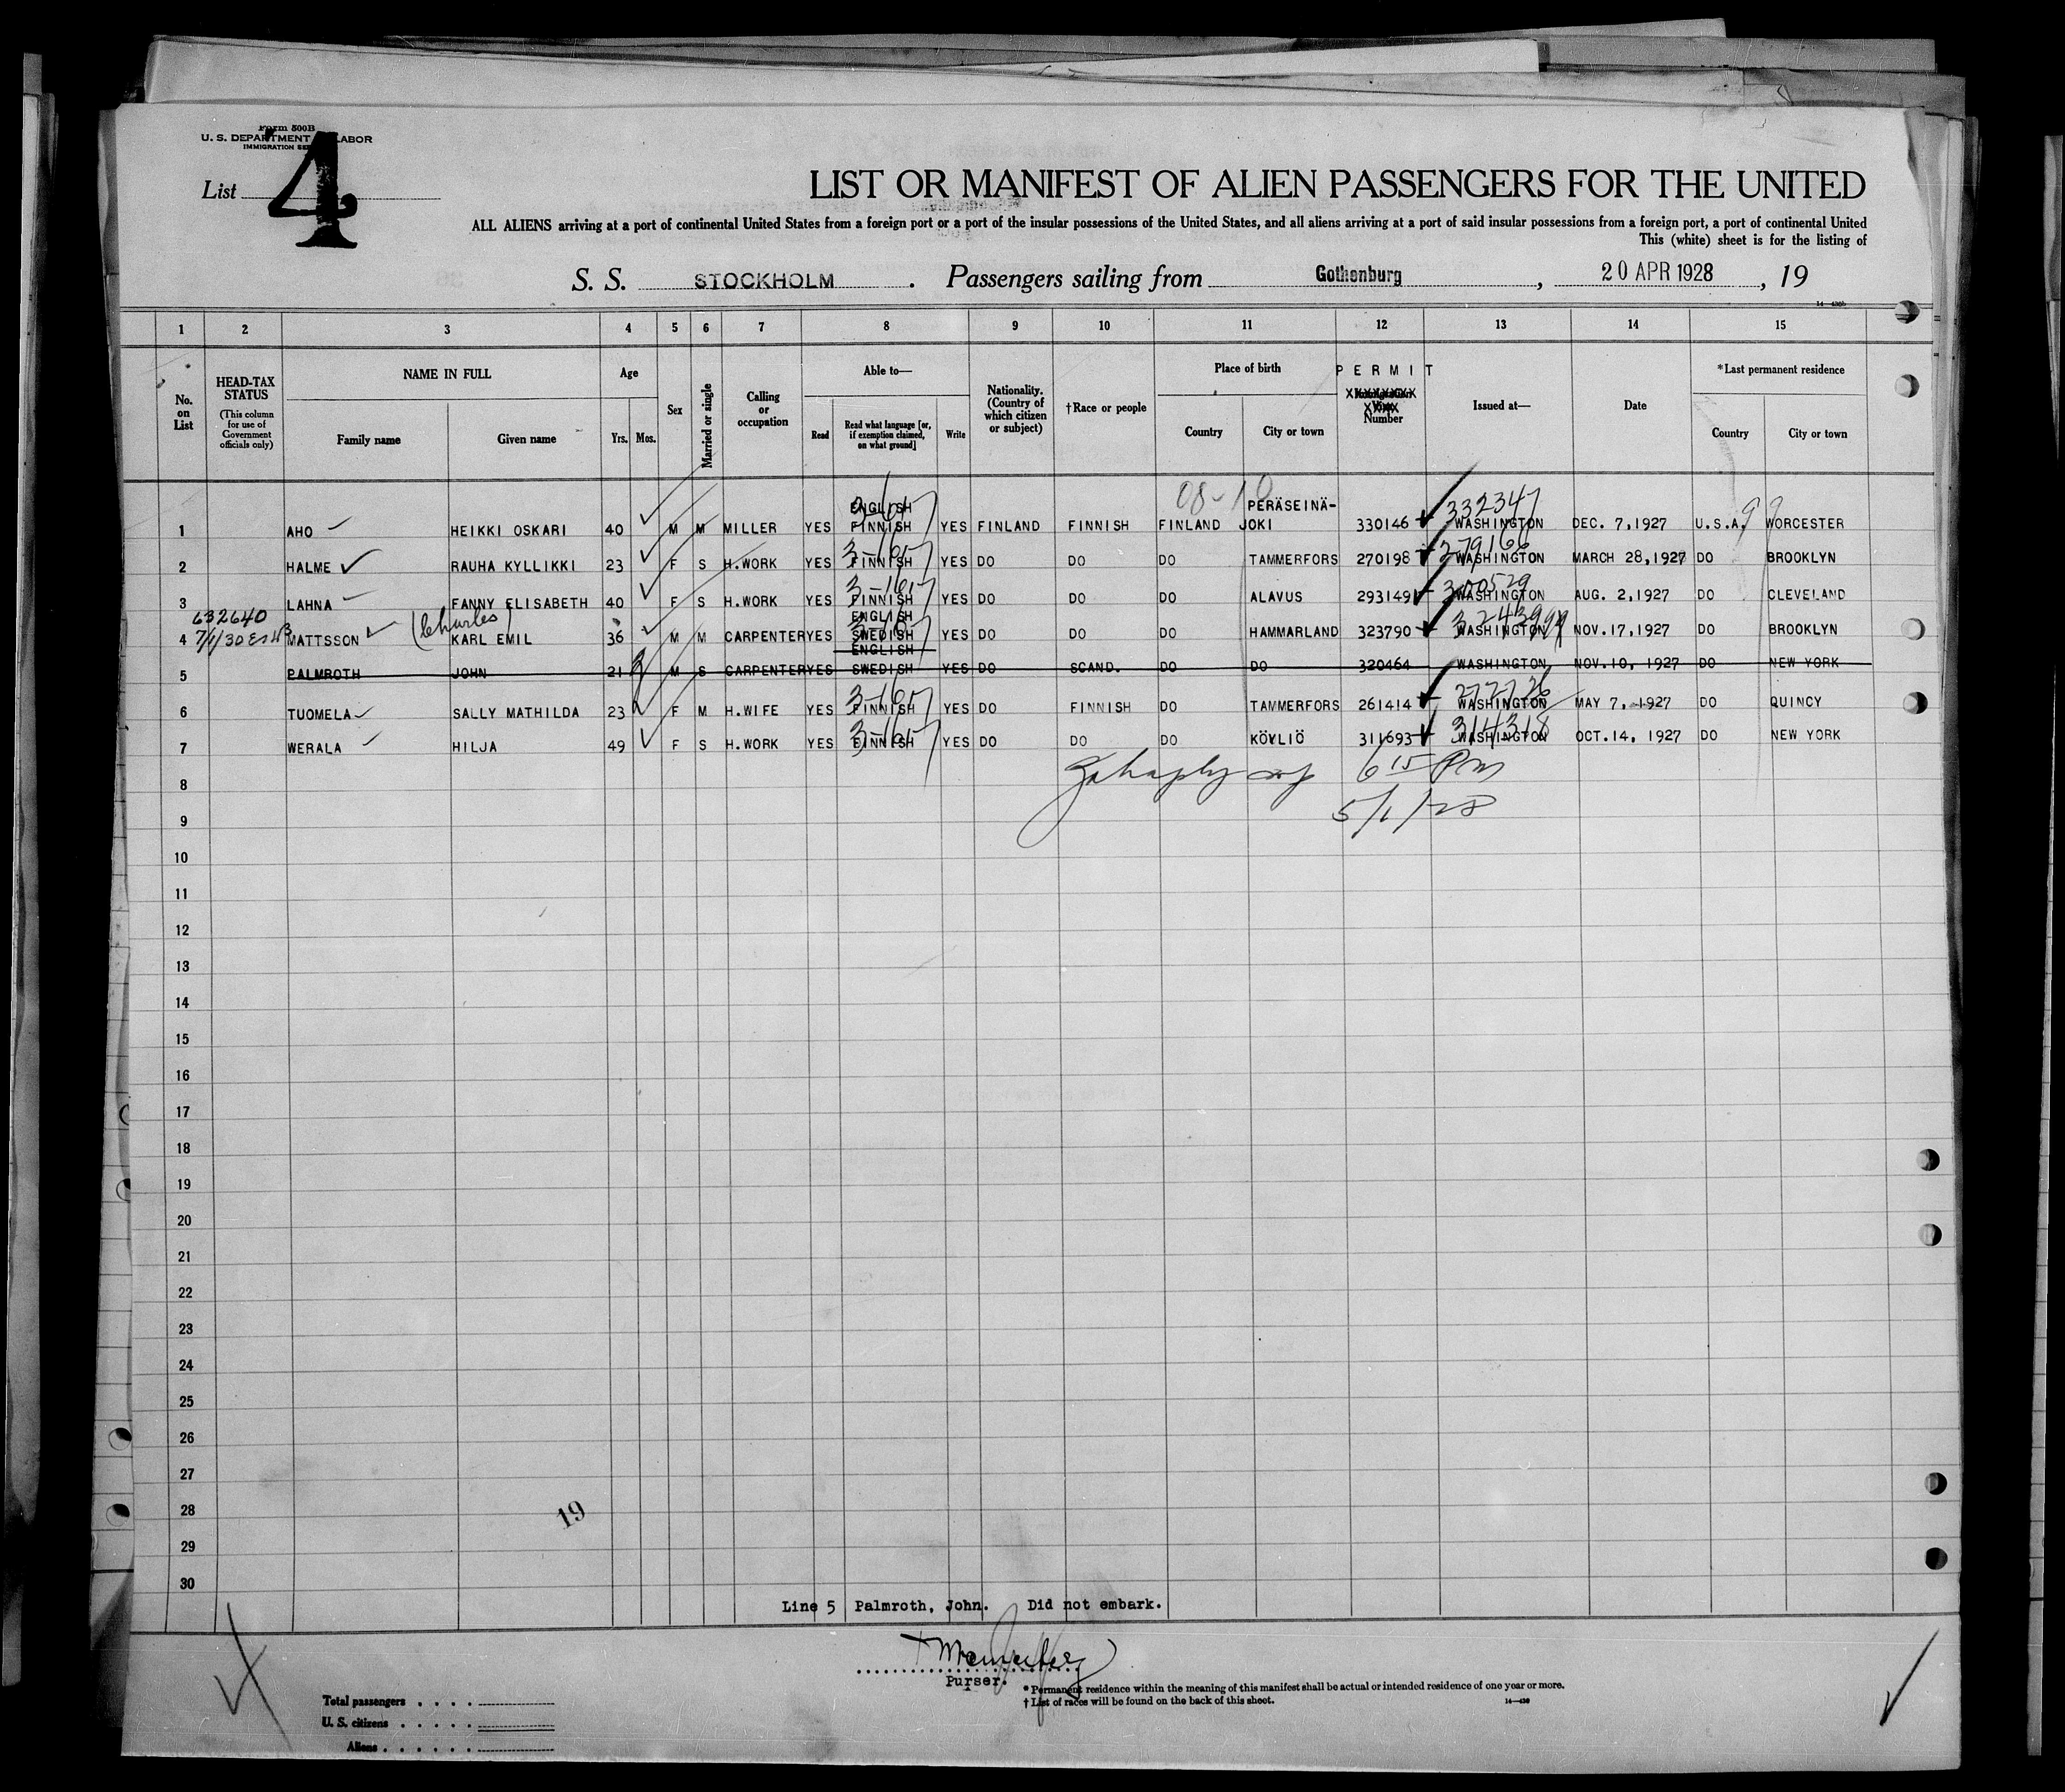 Form 500B
U. S. DEPARTMENT LABOR
IMMIGRATION SE
List 4
LIST OR MANIFEST OF ALIEN PASSENGERS FOR THE UNITED
ALL ALIENS arriving at a port of continental United States from a foreign port or a port of the insular possessions of the United States, and all aliens arriving at a port of said insular possessions from a foreign port, a port of continental United
This (white) sheet is for the listing of
S. S. STOCKHOLM . Passengers sailing from Gothenburg , 20 APR 1928 , 19
1 2 3 4 5 6 7 8 9 10 11 12 13 14 15
No. on List
HEAD-TAX STATUS (This column for use of Government officials only)
NAME IN FULL Family name Given name
Age Yrs. Mos.
Sex
Married or single
Calling or occupation
Able to— Read Read what language [or, if exemption claimed, on what ground] Write
Nationality. (Country of which citizen or subject)
†Race or people
Place of birth Country City or town
PERMIT Number
Issued at—
Date
*Last permanent residence Country City or town
08-10
ENGLISH PERÄSEINÄ- 332347
1 AHO HEIKKI OSKARI 40 M M MILLER YES FINNISH YES FINLAND FINNISH FINLAND JOKI 330146 WASHINGTON DEC. 7,1927 U.S.A. 99 WORCESTER
3-1617 279166
2 HALME RAUHA KYLLIKKI 23 F S H.WORK YES FINNISH YES DO DO DO TAMMERFORS 270198 WASHINGTON MARCH 28,1927 DO BROOKLYN
3-1617 300529
3 LAHNA FANNY ELISABETH 40 F S H.WORK YES FINNISH YES DO DO DO ALAVUS 293149 WASHINGTON AUG. 2,1927 DO CLEVELAND
632640 (Charles) ENGLISH
4 7/1/30 MATTSSON KARL EMIL 36 M M CARPENTER YES SWEDISH YES DO DO DO HAMMARLAND 323790 WASHINGTON NOV.17,1927 DO BROOKLYN
ENGLISH
5 PALMROTH JOHN 21 M S CARPENTER YES SWEDISH YES DO SCAND. DO DO 320464 WASHINGTON NOV.10, 1927 DO NEW YORK
3-1617 277726
6 TUOMELA SALLY MATHILDA 23 F M H.WIFE YES FINNISH YES DO FINNISH DO TAMMERFORS 261414 WASHINGTON MAY 7, 1927 DO QUINCY
3-1617 314318
7 WERALA HILJA 49 F S H.WORK YES FINNISH YES DO DO DO KÖYLIÖ 311693 WASHINGTON OCT.14, 1927 DO NEW YORK
6 15 Pm
8
5/1/28
9
10
11
12
13
14
15
16
17
18
19
20
21
22
23
24
25
26
27
28 19
29
30
Line 5 Palmroth, John. Did not embark.
Purser.
*Permanent residence within the meaning of this manifest shall be actual or intended residence of one year or more.
†List of races will be found on the back of this sheet.
Total passengers
U. S. citizens
Aliens